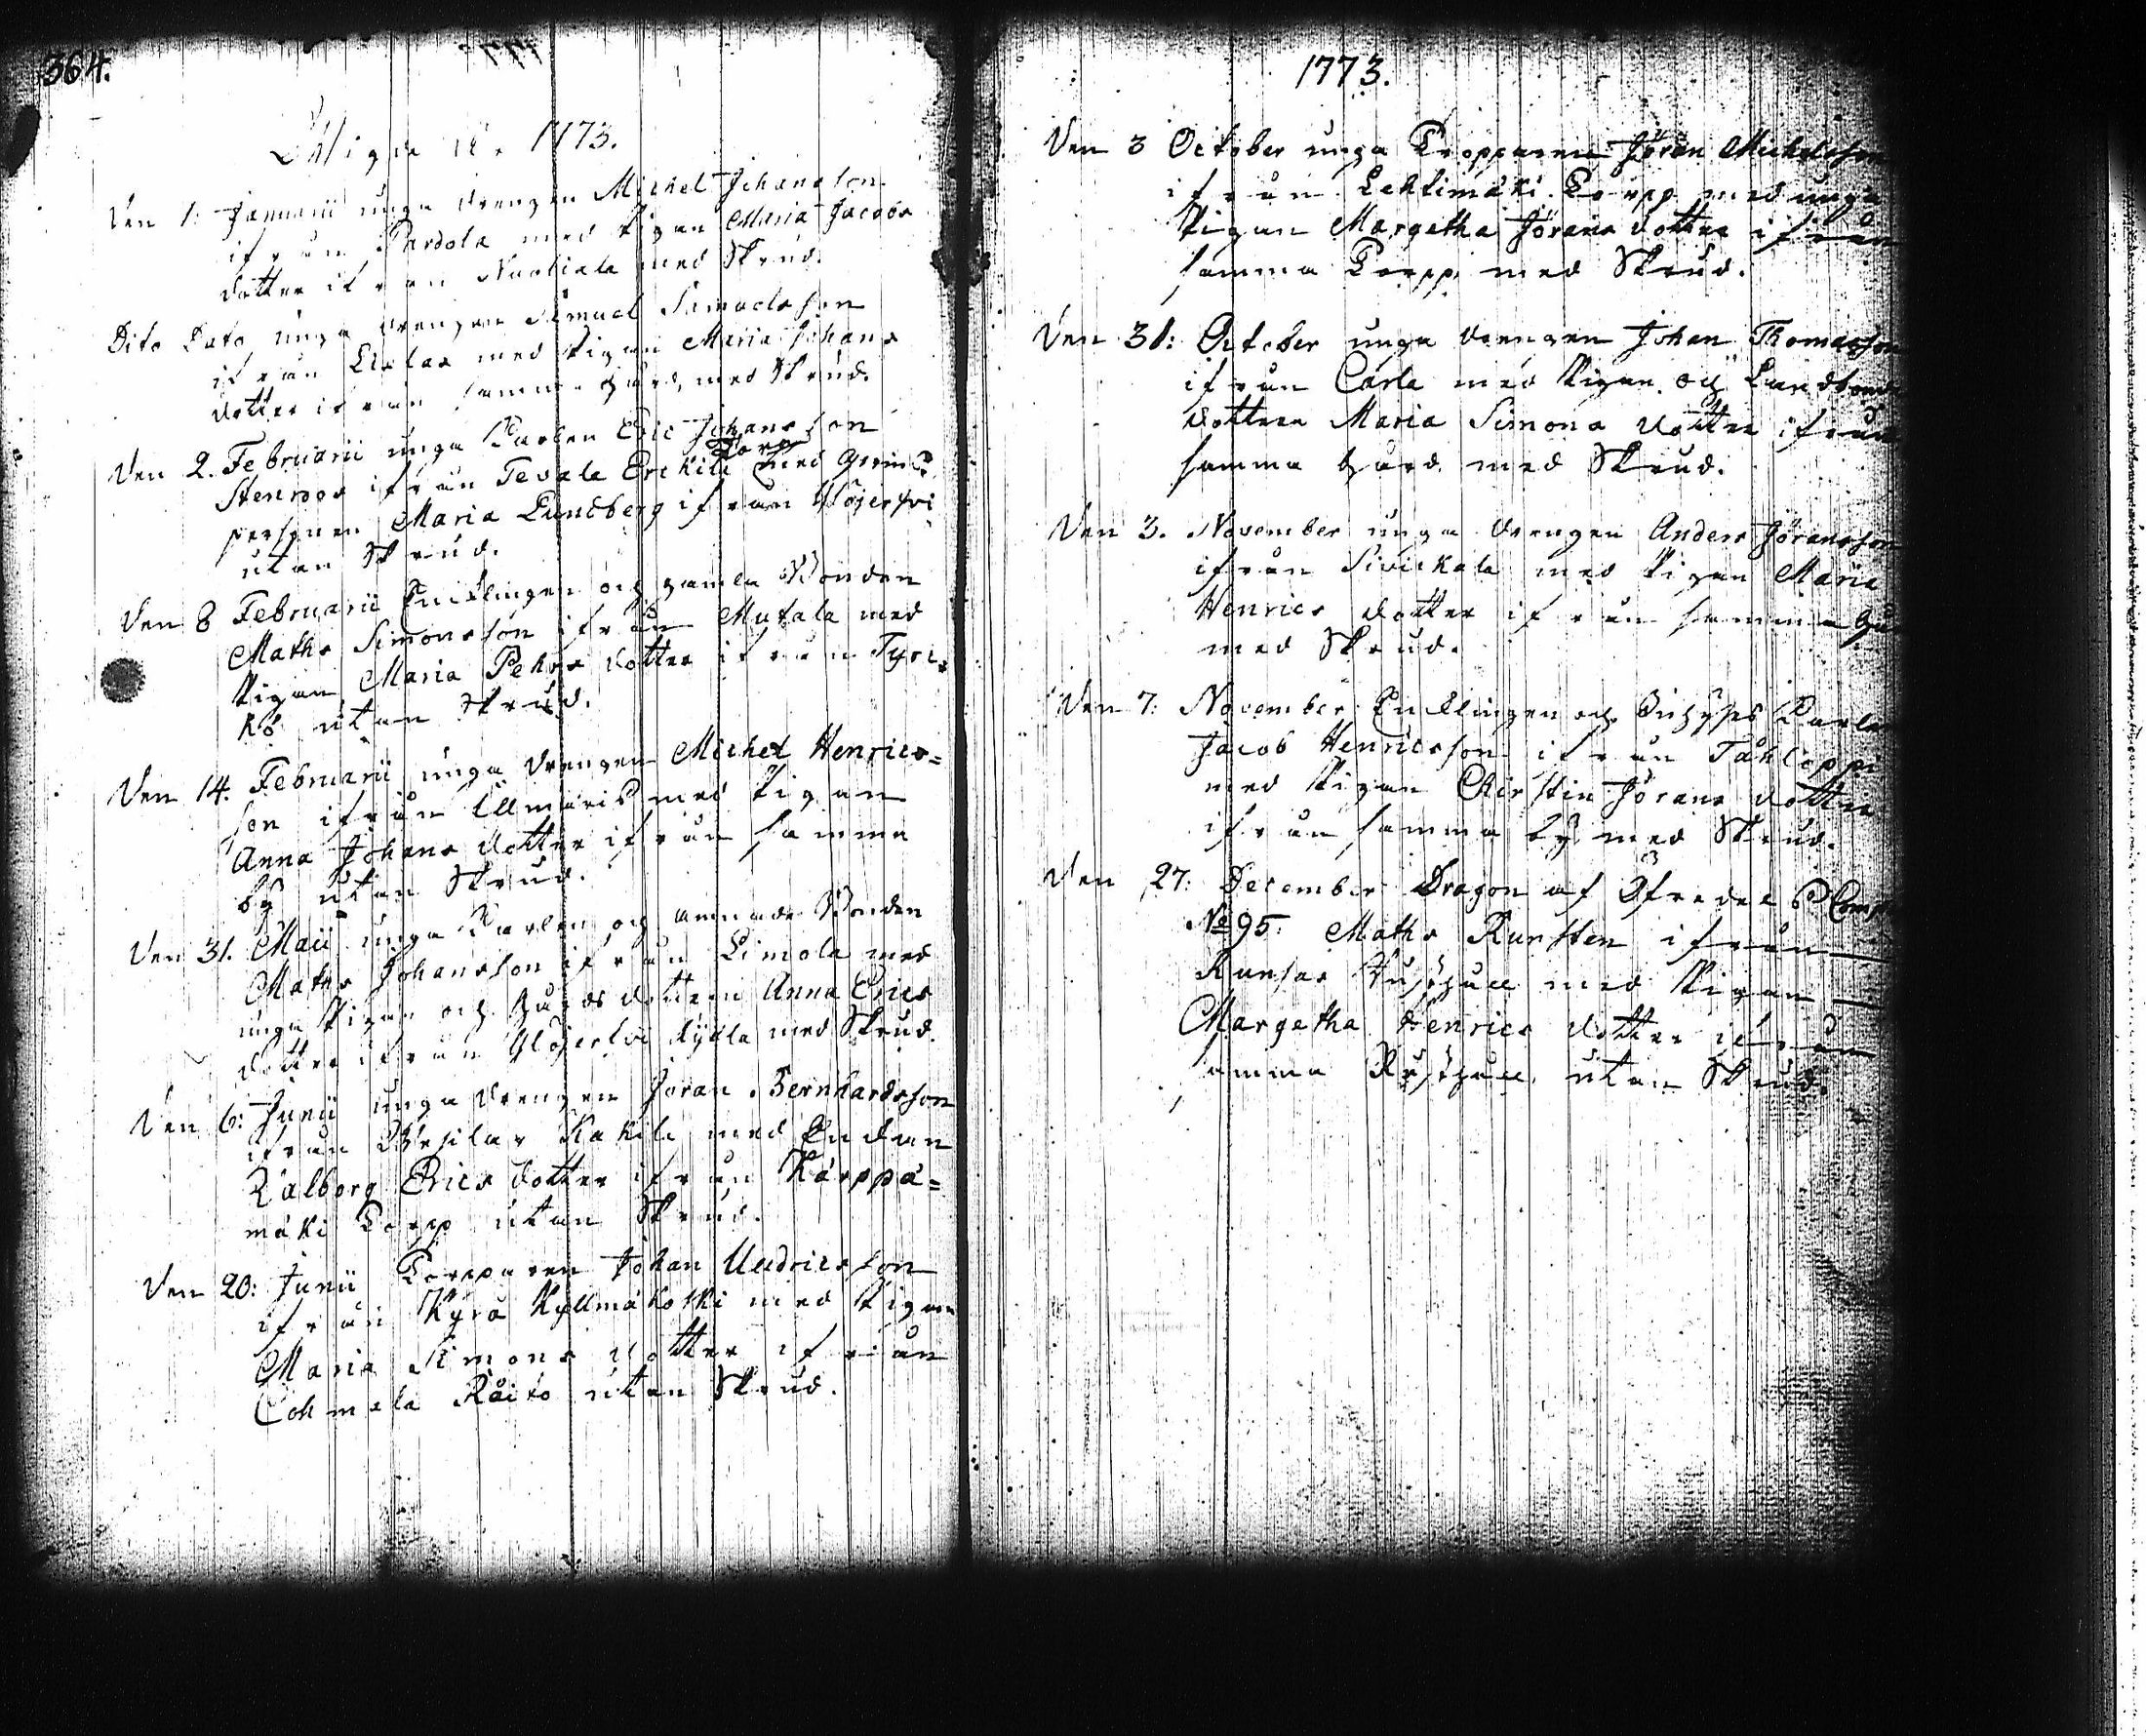 364.
Wigde åhr 1773.
Den 1: Januarii unga drengen Michel Johansson
ifrån Pardola med Pigan Maria Jacobs
dotter ifrån med Skrud.
Dito Dato unga drengen Simuel Samuelsson
ifrån med Pigan Maria Johans
dotter ifrån samma gård, med Skrud.
Den 2. Februarii unga Karlen Eric Johansson
Torp
Stenroos ifrån Tevala Erkilä med
personen Maria Lundberg ifrån
utan Skrud.
Den 8 Februarii Encklingen och gamla Bonden
Maths Simonsson ifrån Mutala med
Pigan Maria Pehrs dotter ifrån Tyris
kö utan Skrud.
Den 14. Februarii unga drengen Michel Henrics=
son ifrån Illmaris med Pigan
Anna Johans dotter ifrån samma
by utan Skrud.
Den 31. Maii unga Karlen och Bonden
Maths Johansson ifrån Limola med
unga Pigan och dottern Anna Erics
dotter ifrån med Skrud.
Den 6: Junii unga drengen Jöran Bernhardsson
ifrån Kakila med Enckan
Walborg Erics dotter ifrån Kärppä=
mäki Torp utan Skrud.
Den 20: Junii Torpparen Johan
ifrån Kyrö Kyllmäkoski med Pigan
Maria Simons dotter ifrån
Räito utan Skrud.
1773.
Den 3 October unga Torpparen Jöran Michelsson
ifrån Lehtimäki Torpp med unga
Pigan Margetha Jörans dotter ifrån
samma Torpp med Skrud.
Den 31: October unga drengen Johan Thomasson
ifrån Carla med Pigan och Landbonde
dottren Maria Simons dotter ifrån
samma gård med Skrud.
Den 3. November unga drengen Anders Jöransson
ifrån Sivickala med Pigan Maria
Henrics dotter ifrån samma
med Skrud.
Den 7: November Encklingen och
Jacob Henricsson ifrån
med Pigan Chirstin Jörans dotter
ifrån samma by med Skrud.
Den 27: December Dragon af Öfverste
№ 95. Maths Runsten ifrån
Runsas Rusthåll med Pigan
Margetha Henrics dotter ifrån
samma Rusthåll utan Skrud.